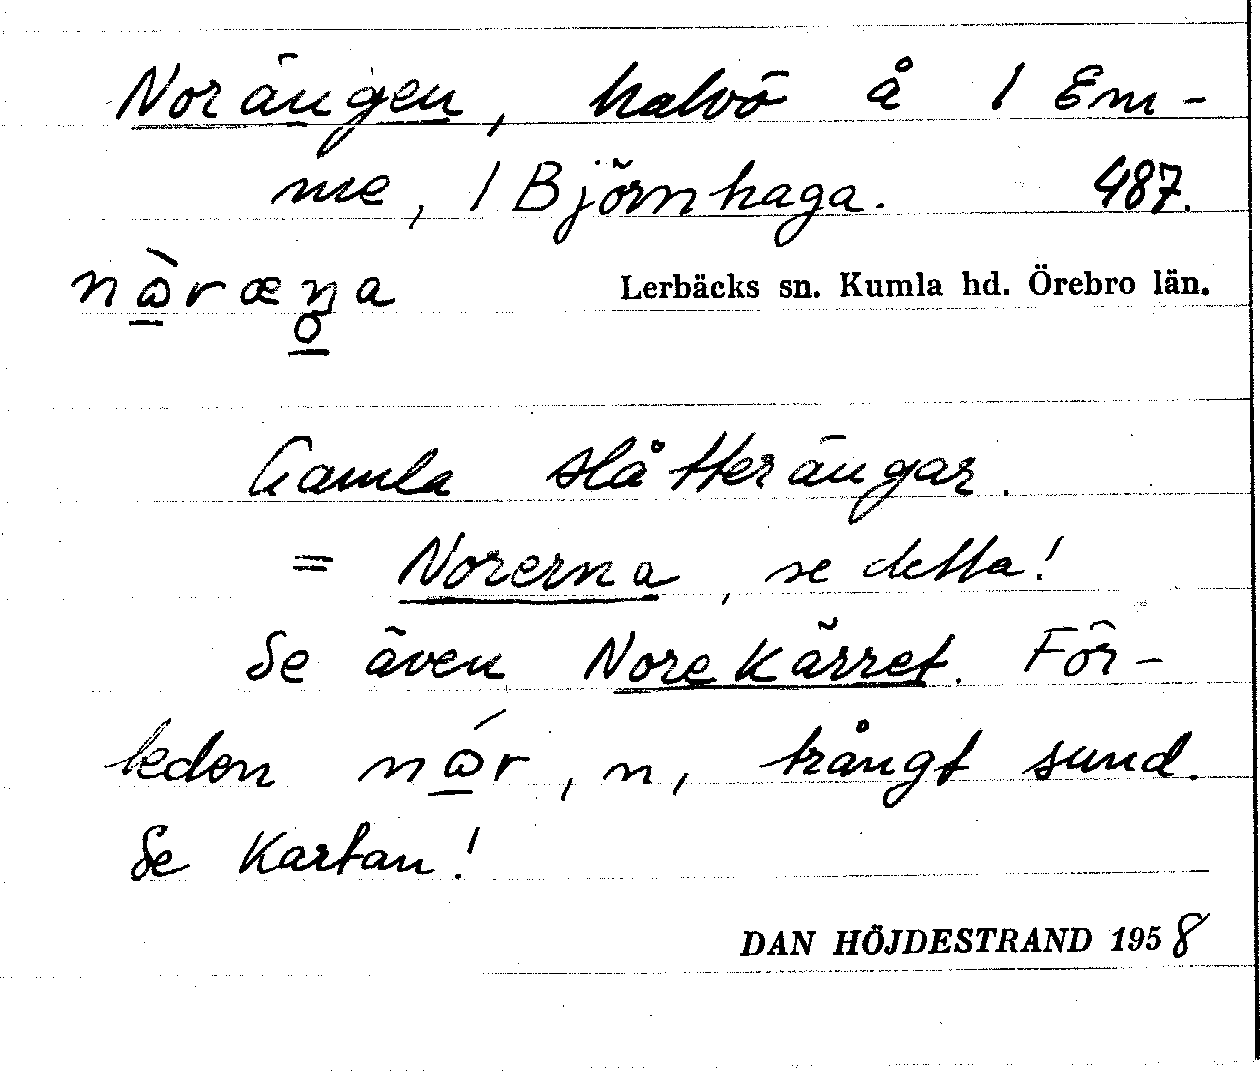 Norängen, halvö å 1 Em-
me, 1 Björnhaga. 487.
nɷ̀ræŋa
o
Lerbäcks sn. Kumla hd. Örebro län.
Gamla slåtterängar.
= Norerna, se detta!
Se även Norekärret. För-
leden nɷ́r, n, trångt sund.
Se kartan!
DAN HÖJDESTRAND 1958